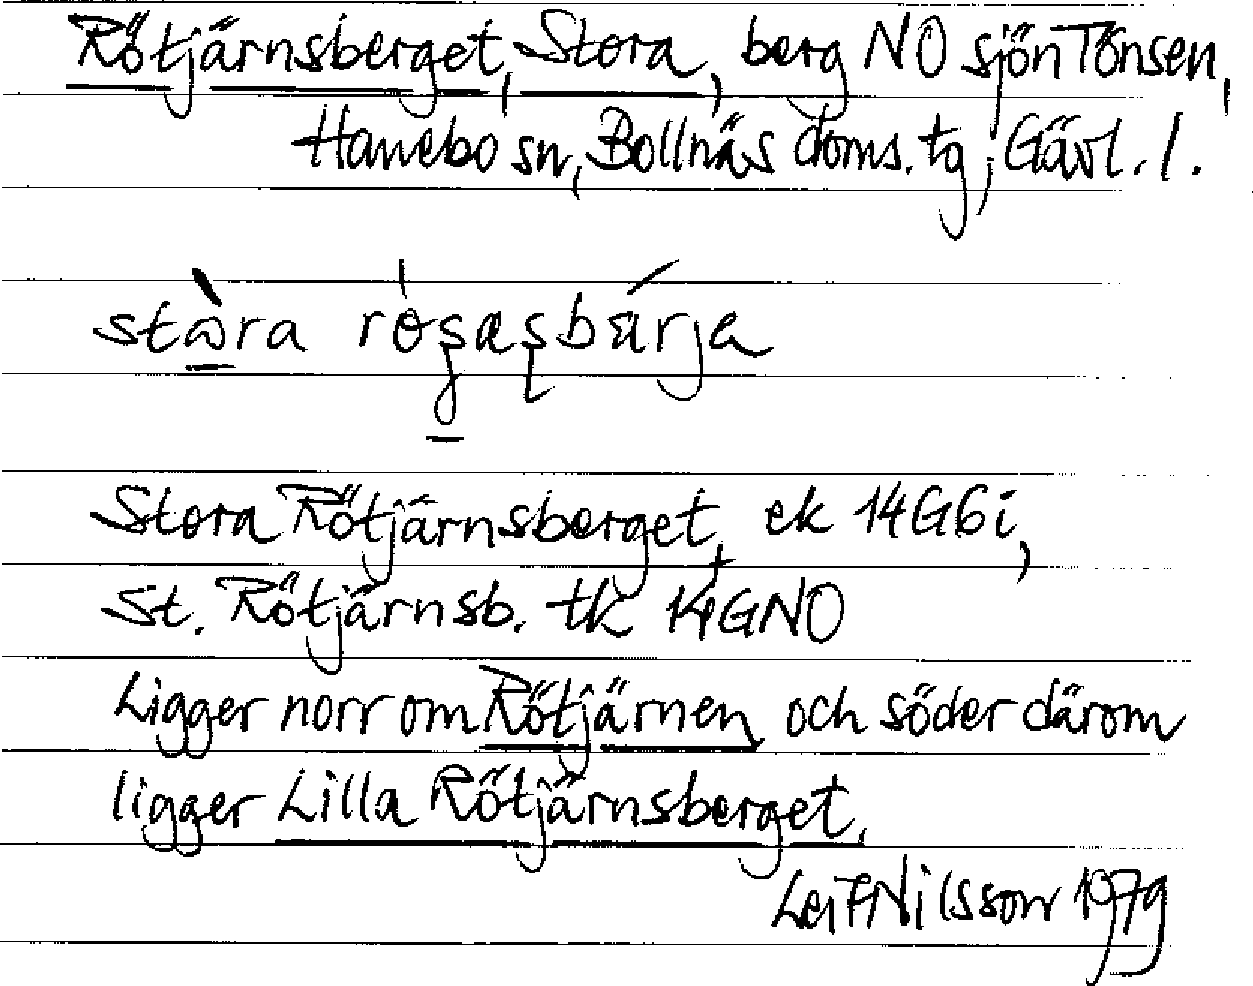 Rötjärnsberget, Stora, berg NO sjön Tönsen,
Hanebo sn, Bollnäs doms. tg, Gävl. l.
Stora Rötjärnsberget, ek 14G6i,
St. Rötjärnsb. tk 14GNO
Ligger norr om Rötjärnen och söder därom
ligger Lilla Rötjärnsberget.
Leif Nilsson 1979